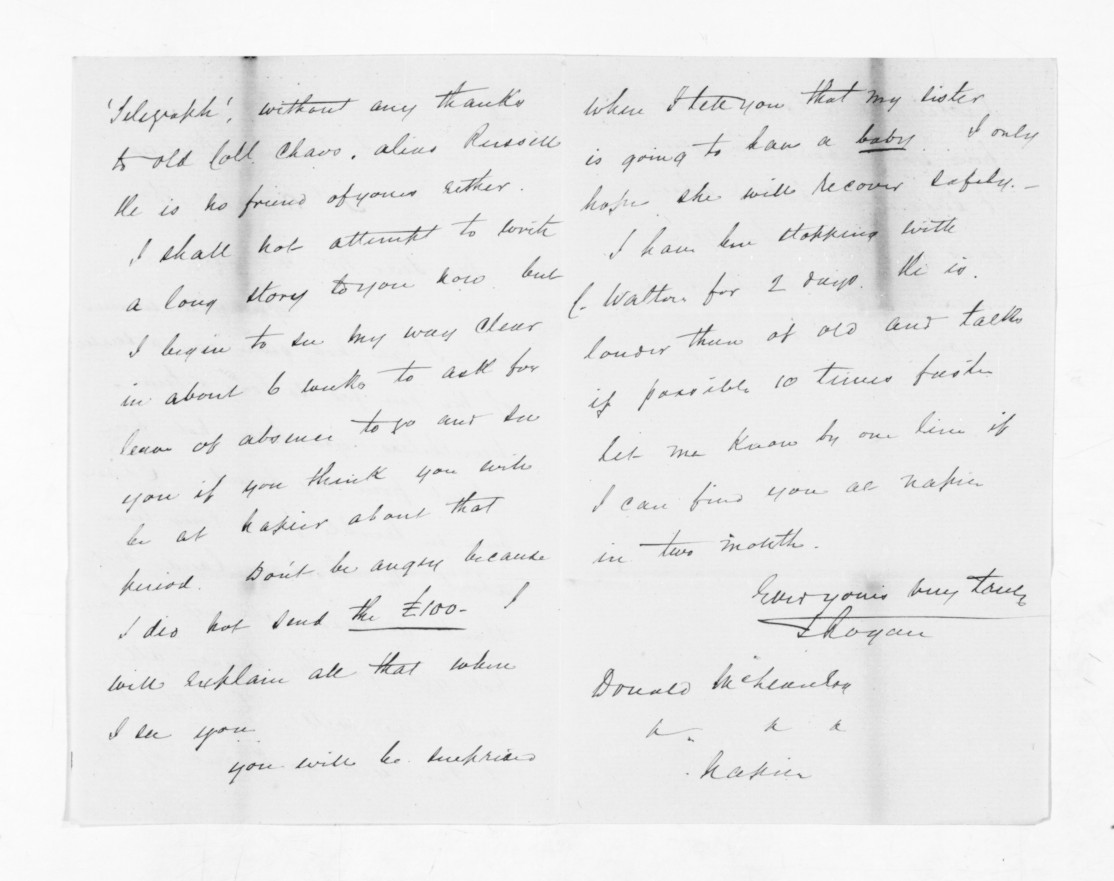 'Telegraph', without any thanks
to old Coll. Chaos. alias Russell
He is no friend of yours either.
I shall not attempt to write
a long story to you now but
I begin to see my way clear
in about 6 weeks to ask for
leave of absence to go and see
you if you think you will
be at Napier about that
period. Don't be angry because
I did not send the £100- I
will explain all that when
I see you
you will be surprised
when I tell you that my sister
is going to have a baby. I only
hope she will recover safely. -
I have been stopping with
C. Walton for 2 days. He is
louder than of old and talks
if possible 10 times faster
let me know by one line if
I can find you at Napier
in two months.
Ever yours very truly
Donald McLean Esq
Napier